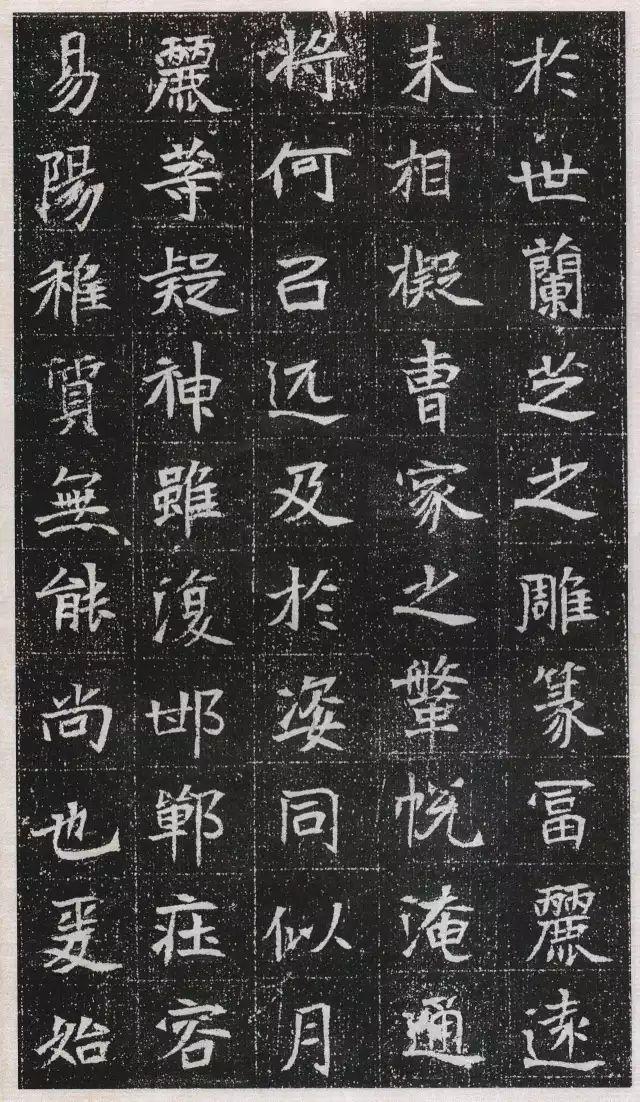 於世蘭芝之雕篆冨麗遠
未相擬曹家之鞶帨淹通
将何以遠及於姿同似月
麗等疑神雖復邯鄲莊容
易陽稚質無能尚也爰始